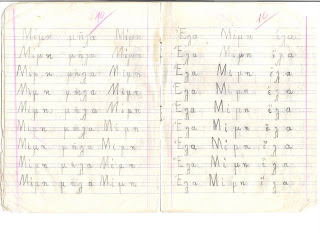 10
Μίμη μῆλα Μίμη
Μίμη μῆλα Μίμη
Μίμη μῆλα Μίμη
Μίμη μῆλα Μίμη
Μίμη μῆλα Μίμη
Μίμη μῆλα Μίμη
Μίμη μῆλα Μίμη
Μίμη μῆλα Μίμη
Μίμη μῆλα Μίμη
10
Ἔλα Μίμη ἔλα
Ἔλα Μίμη ἔλα
Ἔλα Μίμη ἔλα
Ἔλα Μίμη ἔλα
Ἔλα Μίμη ἔλα
Ἔλα Μίμη ἔλα
Ἔλα Μίμη ἔλα
Ἔλα Μίμη ἔλα
Ἔλα Μίμη ἔλα